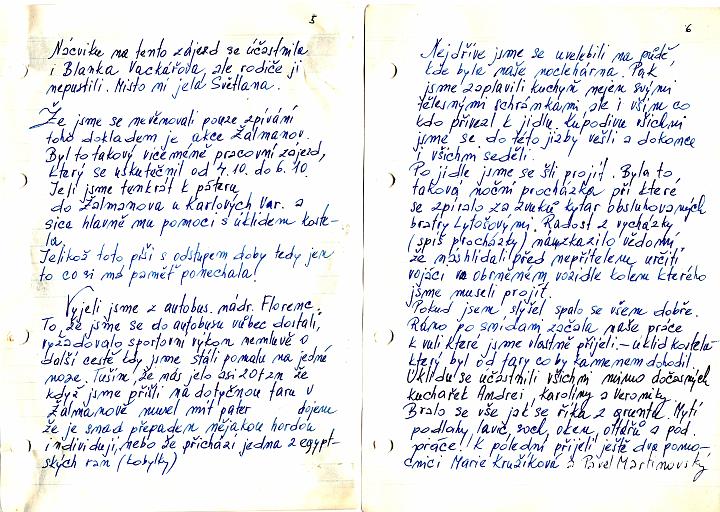 5
Nácviku na tento zájezd se účastnila
i Blanka Vackářova, ale rodiče ji
nepustili. Místo ní jela Světlana.
Že jsme se nevěnovali pouze zpívání
toho dokladem je akce Žalmanov.
Byl to takový víceméně pracovní zájezd,
který se uskutečnil od 4.10. do 6.10.
Jeli jsme tenkrát k páteru
do Žalmanova u Karlových Var. a
sice hlavně mu pomoci s úklidem koste-
la.
Jelikož toto píši s odstupem doby tedy jen
to co si má paměť ponechala!
Vyjeli jsme z autobus. nádr. Florenc.
To, že jsme se do autobusu vůbec dostali,
vyžadovalo sportovní výkon nemluvě o
další cestě kdy jsme stáli pomalu na jedné
noze. Tuším, že nás jelo asi 20 tzn že
když jsme přišli na dotyčnou faru v
Žalmanově musel mít pater dojem
že je snad přepaden nějakou hordou
individuí, nebo že přichází jedna z egypt-
ských ran (kobylky)
6
Nejdříve jsme se uvelebili na půdě,
kde byla naše noclehárna. Pak
jsme zaplavili kuchyň nejen svými
tělesnými schránkami ale i vším co
kdo přivezl k jídlu, kupodivu všichni
jsme se do této jizby vešli a dokonce
i všichni seděli.
Po jídle jsme se šli projít. Byla to
taková noční procházka při které
se zpíralo za zvuků kytar obsluhovaných
bratry Lytošovými. Radost z vycházky
(spíš procházky) nám zkazilo vědomí,
že nás hlídali před nepřítelem určití
vojáci v obrněném vozidle kolem kterého
jsme museli projít.
Pokud jsem slyšel spalo se všem dobře.
Ráno po snídani začala naše práce
k vůli které jsme vlastně přijeli. – úklid kostela
který byl od fary co by kamenem dohodil
Úklidu se účastnili všichni mimo dočasných
kuchařek Andrei, karoliny a veroniky
Bralo se vše jak se říká z gruntu. Mytí
podlahy lavic, soch, oken, oltářů a pod.
práce! K polední přijeli ještě dva pomo-
cníci Marie Kružíková a Pavel Martinovský